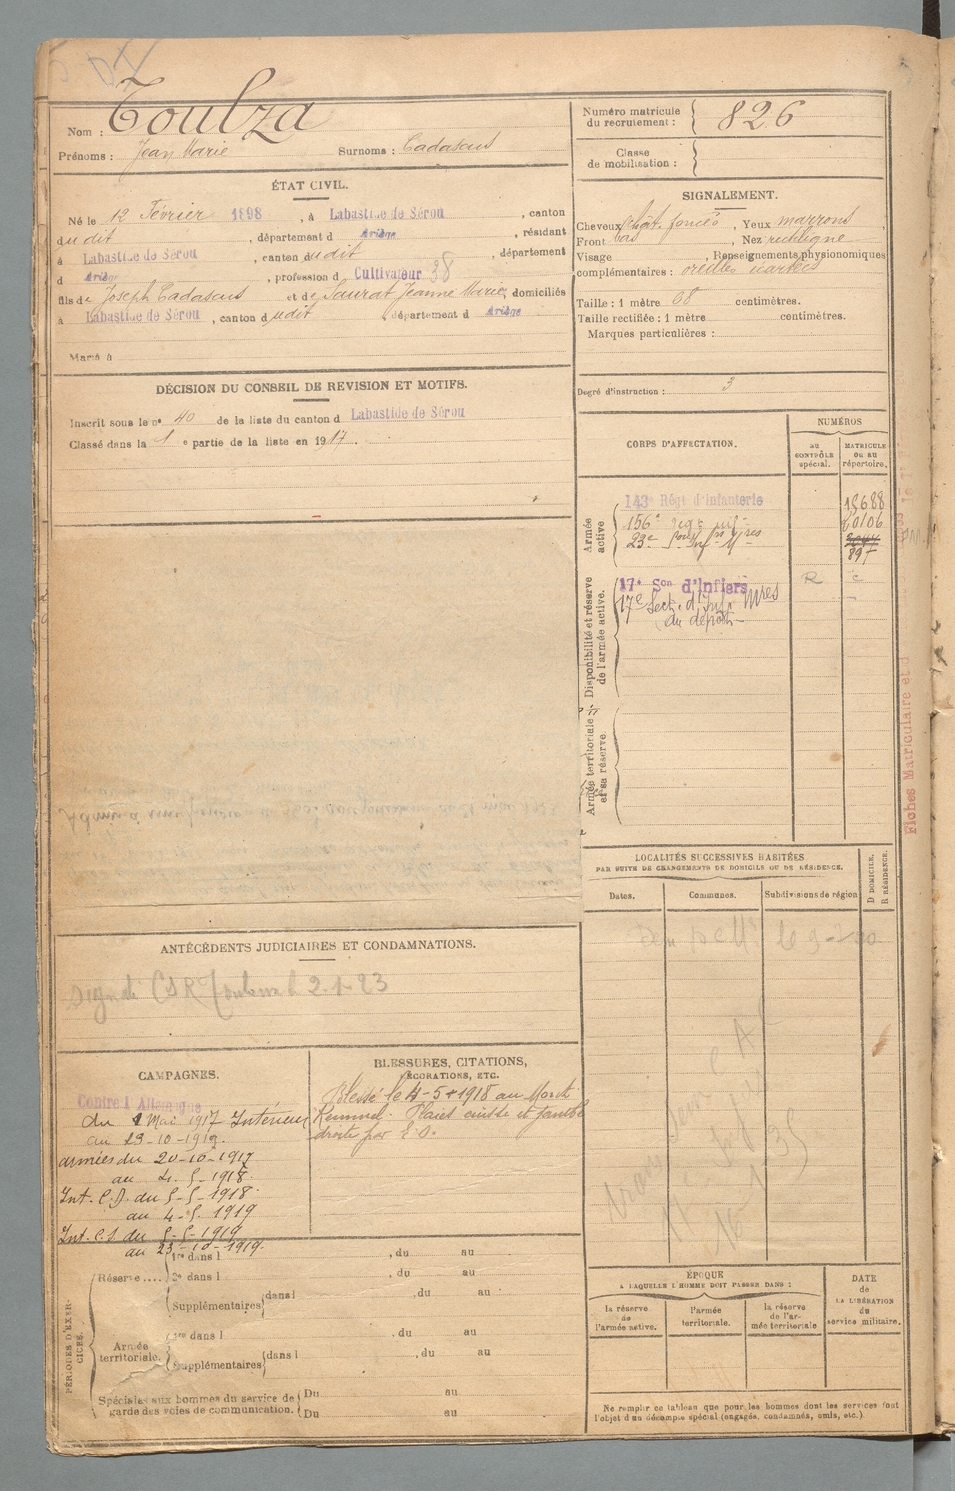 Nom : Toulza
Prénoms : Jean Marie Surnoms : Cadascus
Numéro matricule du recrutement : 826
Classe de mobilisation :
ÉTAT CIVIL.
Né le 12 Février 1898, à Labastide de Sérou, canton
dudit, département d Ariège, résidant
à Labastide de Sérou, canton dudit, département
d Ariège, profession d Cultivateur 38
fils de Joseph Cadascus et de Saurat Jeanne Marie, domiciliés
à Labastide de Sérou, canton dudit, département d Ariège
Marié à
SIGNALEMENT.
Cheveux chât. foncés, Yeux marrons,
Front bas, Nez rectiligne
Visage, Renseignements physionomiques
complémentaires : oreilles écartées
Taille : 1 mètre 68 centimètres.
Taille rectifiée : 1 mètre centimètres.
Marques particulières :
Degré d'instruction : 3
DÉCISION DU CONSEIL DE REVISION ET MOTIFS.
Inscrit sous le nº 40 de la liste du canton d Labastide de Sérou
Classé dans la 1e partie de la liste en 1917.
CORPS D'AFFECTATION.
NUMÉROS
au CONTRÔLE spécial.
MATRICULE ou au répertoire.
Armée active
143e Régt d'Infanterie 15688
156e 60106
23e 897
Disponibilité et réserve de l'armée active.
17e Son d'Infiers R c
17e Sect. d'Infirs Mres
du dépôt
Armée territoriale et sa réserve.
Fiches Matriculaire et d
LOCALITÉS SUCCESSIVES HABITÉES
PAR SUITE DE CHANGEMENTS DE DOMICILE OU DE RÉSIDENCE.
Dates. Communes. Subdivisions de région
D DOMICILE. R RÉSIDENCE.
ANTÉCÉDENTS JUDICIAIRES ET CONDAMNATIONS.
CSR Toulouse 2-1-23
CAMPAGNES.
Contre l'Allemagne
du 1 Mai 1917 Intérieur
au 19-10-1917.
armées du 20-10-1917
au 4-5-1918.
Int. C.D. du 5-5-1918
au 4-5-1919
Int. C.S. du 5-5-1919
au 23-10-1919.
BLESSURES, CITATIONS,
DÉCORATIONS, ETC.
Blessé le 4-5-1918 au Mont
Kemmel. Plaies cuisse et jambe
droite par E.O.
PÉRIODES D'EXERCICES.
Réserve ....
1re dans l, du au
2e dans l, du au
Supplémentaires dans l, du au
Armée territoriale.
1re dans l, du au
Supplémentaires dans l, du au
Spéciales aux hommes du service de garde des voies de communication.
Du au
Du au
ÉPOQUE
A LAQUELLE L'HOMME DOIT PASSER DANS :
la réserve de l'armée active.
l'armée territoriale.
la réserve de l'armée territoriale
DATE de LA LIBÉRATION du service militaire.
Ne remplir ce tableau que pour les hommes dont les services font
l'objet d'un décompte spécial (engagés, condamnés, omis, etc.).